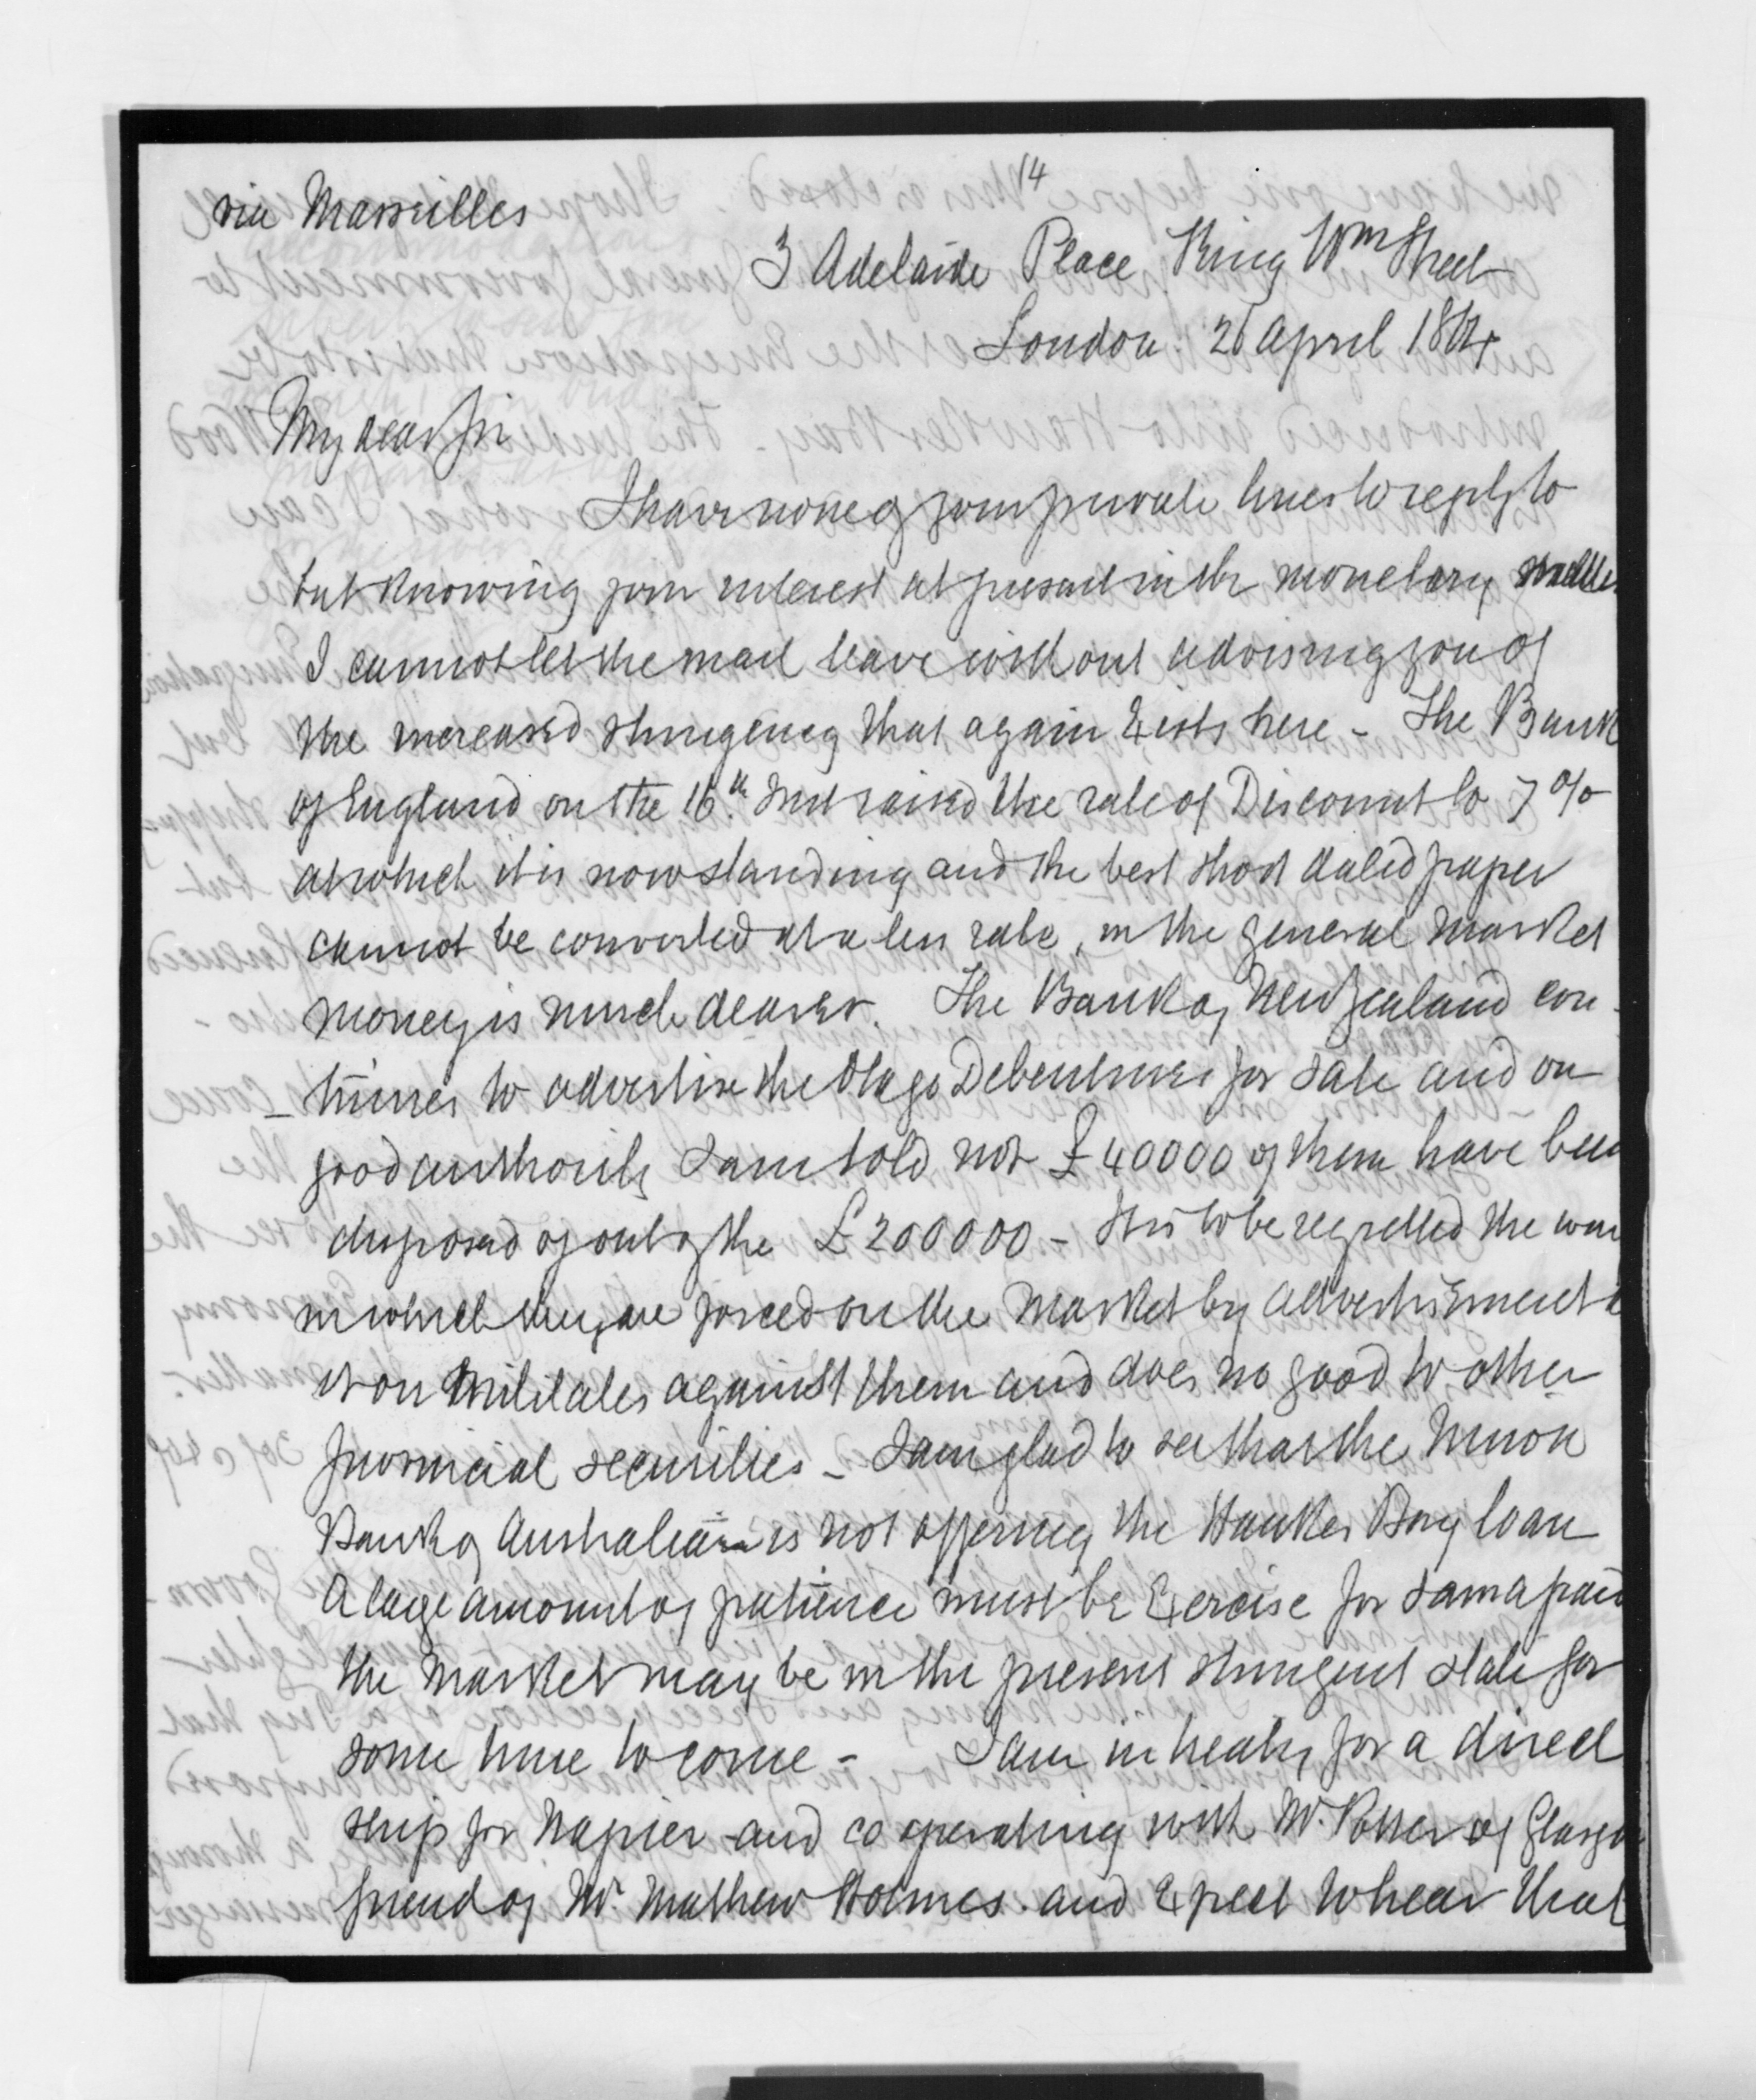 14
via Marseilles
3 Adelaide Place King Wm Street
London 26 April 1864
My dear Sir
I have none of your private lines to reply to
but knowing your interest at present in the monetary
I cannot let the mail leave without advising you of
the increased stringency that again Exists here - The Bank
of England on the 16th. Inst raised the rate of Discount to 7 %
at which it is now standing and the best short dated paper
cannot be converted at a less rate, in the general Market
money is much dearer. The Bank of New Zealand con-
-tinues to advertise the Otago Debentures for sale and on
good authority I am told not £40000 of them have been
disposed of out of the £200000 - It is to be regretted the way
in which they are forced on the Market by advertisement
militates against them and does no good to other
provincial securities - I am glad to see that the Union
Bank of Australia is not offering the Hawkes Bay loan
A large amount of patience must be Exercise for I am afraid
the Market may be in the present stringent state for
some time to come - I am in treaty for a direct
ship for Napier and co operating with Mr. Potter of Glasgow
friend of Mr. Mathew Holmes. and Expect to hear that